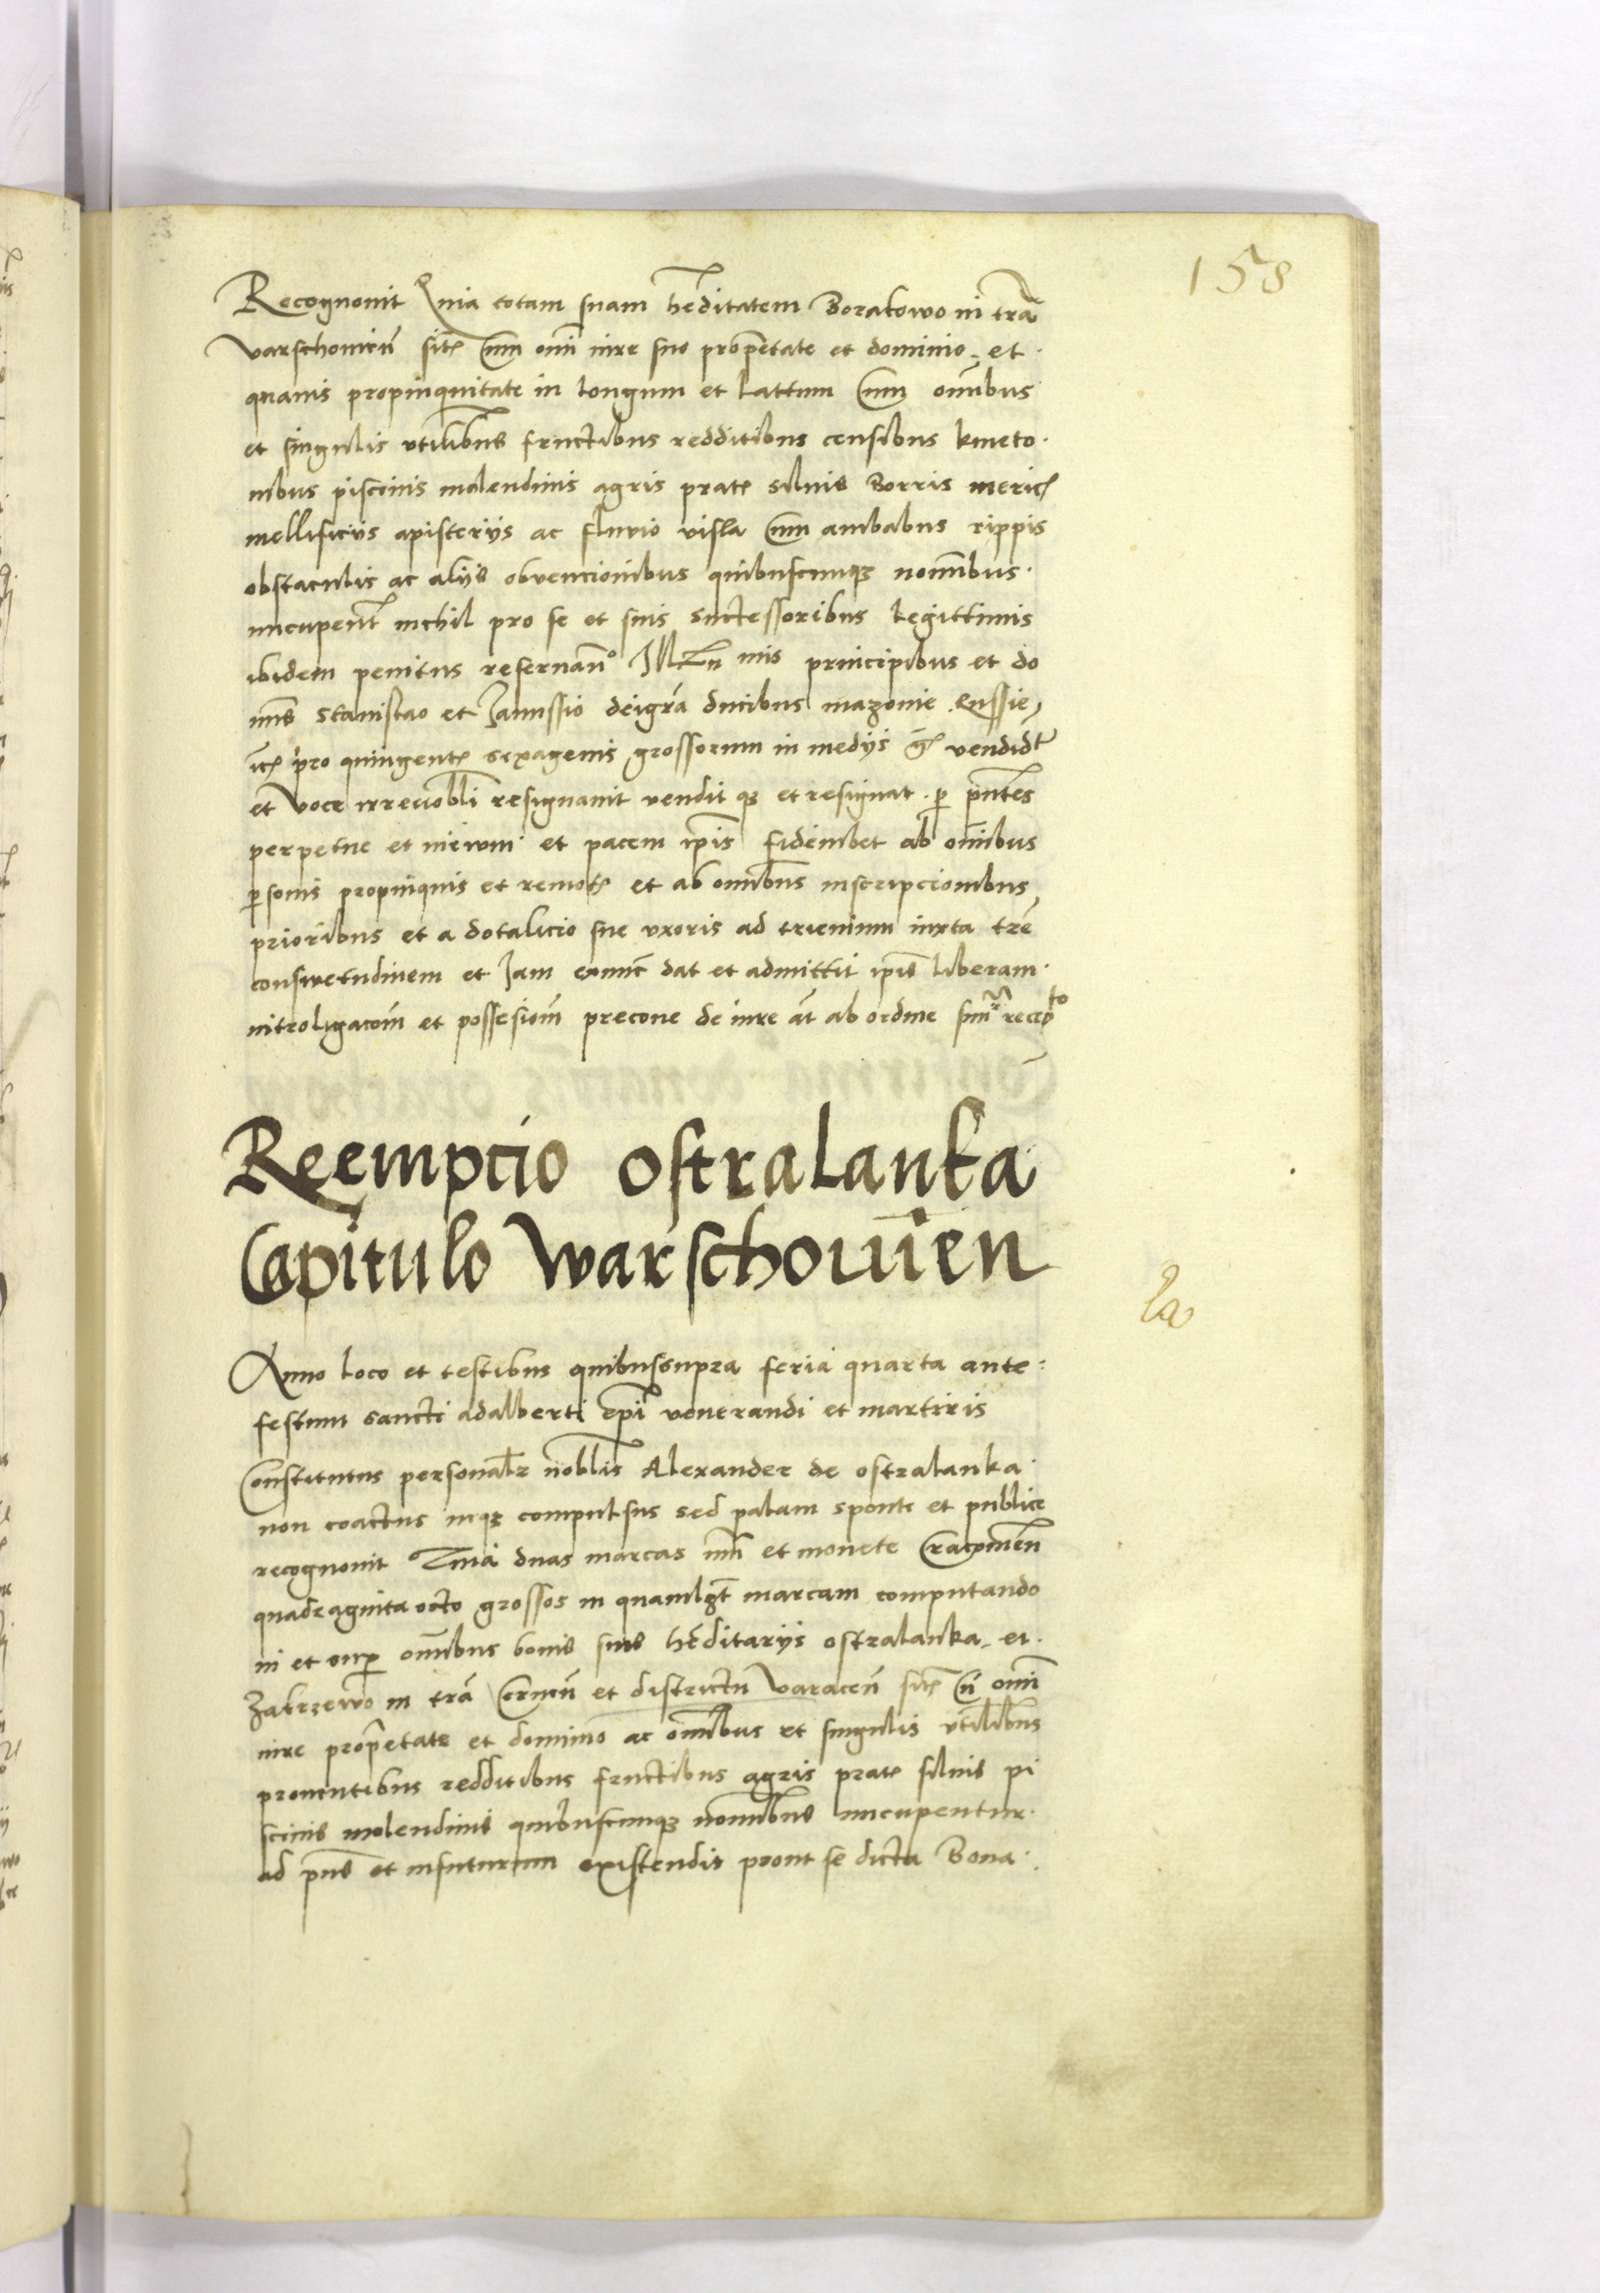 158
Recognouit Quia totam suam hẽditatem Borakowo in trã
varschouieñ sitẽ Cum oñi iure suo proprietate et dominio et
quauis propinquitate in longum et lattum Cum oñibus
et singulis vtilibus fructibus redditibus censibus kmeto
nibus piscinis molendinis agris pratẽ siluis Borris mericẽ
mellificiis apisterijs ac fluuio visla Cum ambabus rippis
obstaculis ac alijs obvencionibus quibuscunqz noĩnibus
nncupent nichil pro se et suis successoribus legittimis
ibidem penitus reseruando Illustri mis principibus et do
mis Stanislao et Janussio deigrã ducibus mazouie Russie
pro quingentẽ sexagenis grossorum in medijs vendidt
et voce irreuobli resignauit vendit qz et resignat per pñtes
perpetue et in ewm et pacem ipis fideiubet ab oñibus
psonis propinquis et remotẽ et ab omibus inscripcionibus
prioribus et a dotalicio sue vxoris ad trienium iuxta tre
conswetudinem et Jam exnunc dat et admittit ipis liberam
introligacom et possesiom precone de iure at ab ordine recepto
Reempcio ostralanka
Capitulo warschouien
Anno loco et testibus quibussupra feria quarta ante
festum sancti adalberti epi venerandi et martiris
Constitutus personalr noblis Alexander de ostralanka
non coactus neqz compulsus sed palam sponte et publice
recognouit Quia duas marcas num et monete Cracouien
quadraginta octo grossos in quamlibet marcam computando
in et super oñibus bonis suis hẽditarijs ostralanka et
Zakrzewo in trã Cernen et districtu varacen sitẽ cu oñi
iure proprietate et dominio ac oñibus et singulis vtilibus
prouentibus redditibus fructibus agris pratẽ siluis pi
scinis molendinis quibuscunqz nomibus nncupentur
ad pns et infuturum existendis prout se dicta Bona